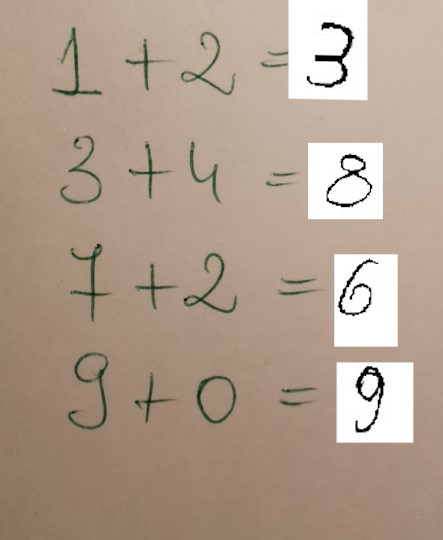 1 + 2 = 3
3 + 4 = 8
7 + 2 = 6
9 + 0 = 9